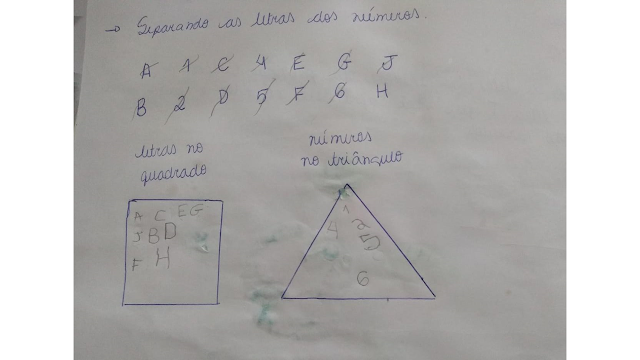 → Separando as letras dos números.
A 1 C 4 E G J
B 2 D 5 F 6 H
letras no quadrado
números no triângulo
A C E G
J B D
F H
1
4 2
5
6